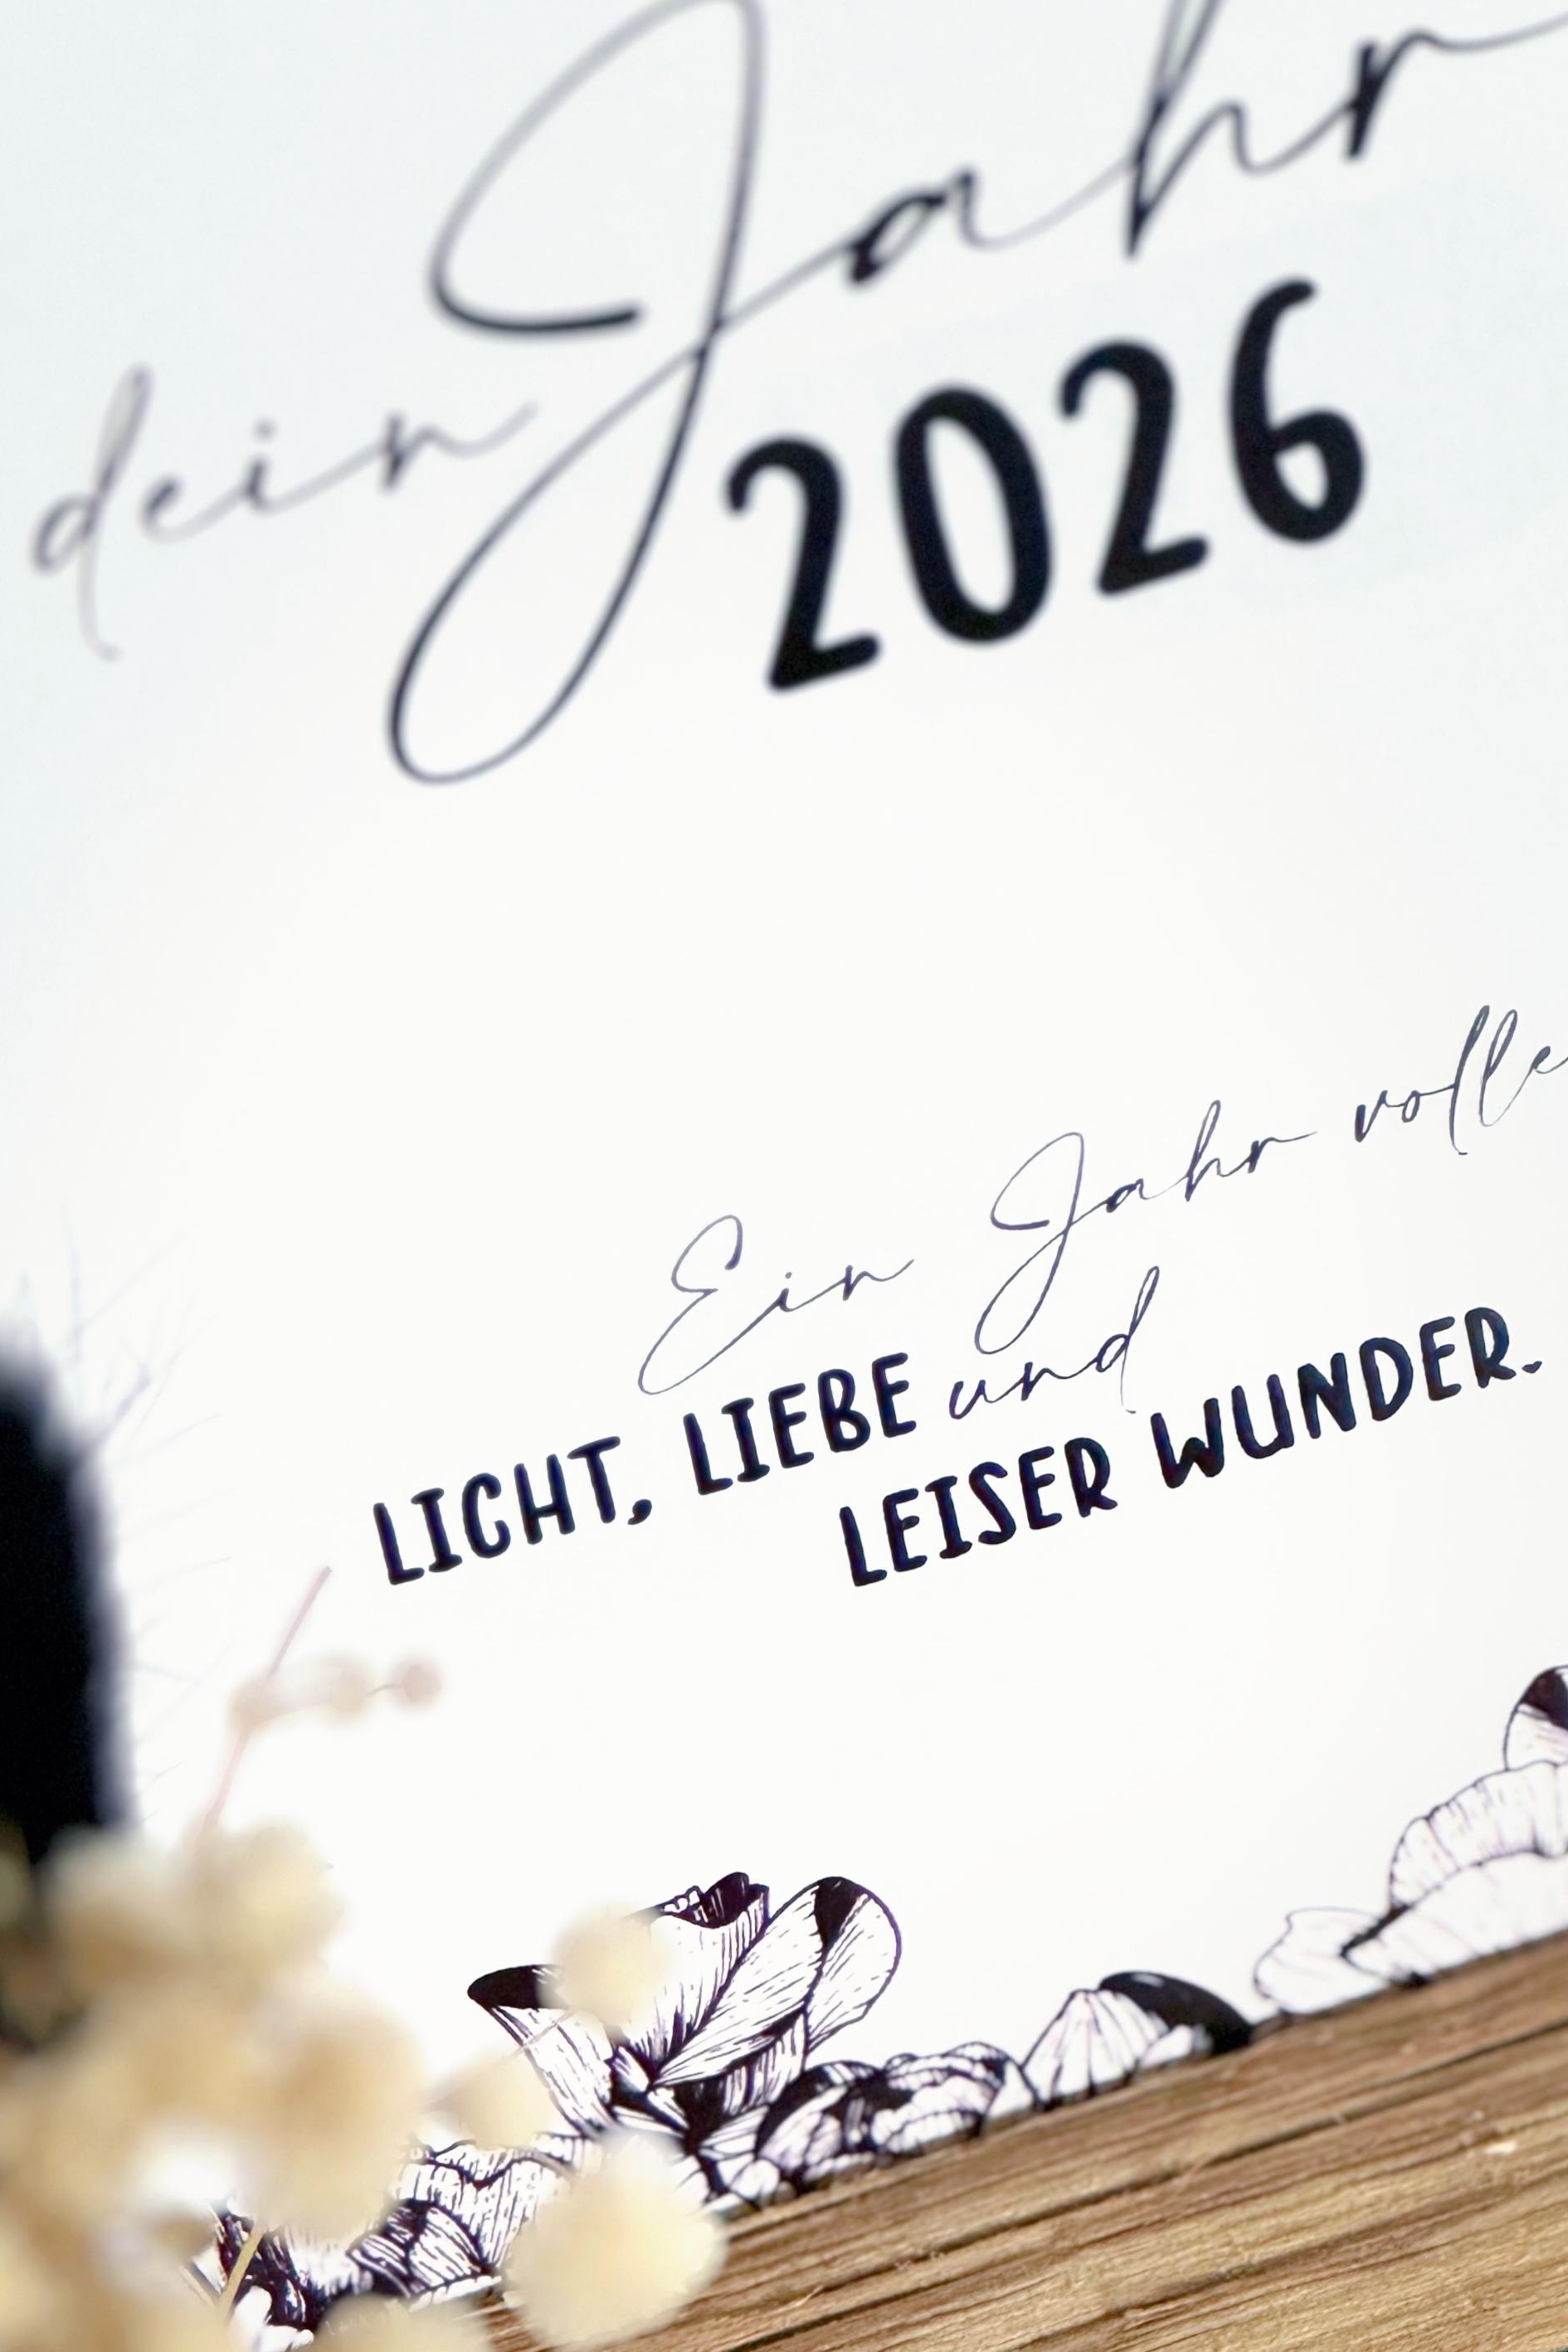 dein Jahr
2026
Ein Jahr volle
LICHT, LIEBE und
LEISER WUNDER.